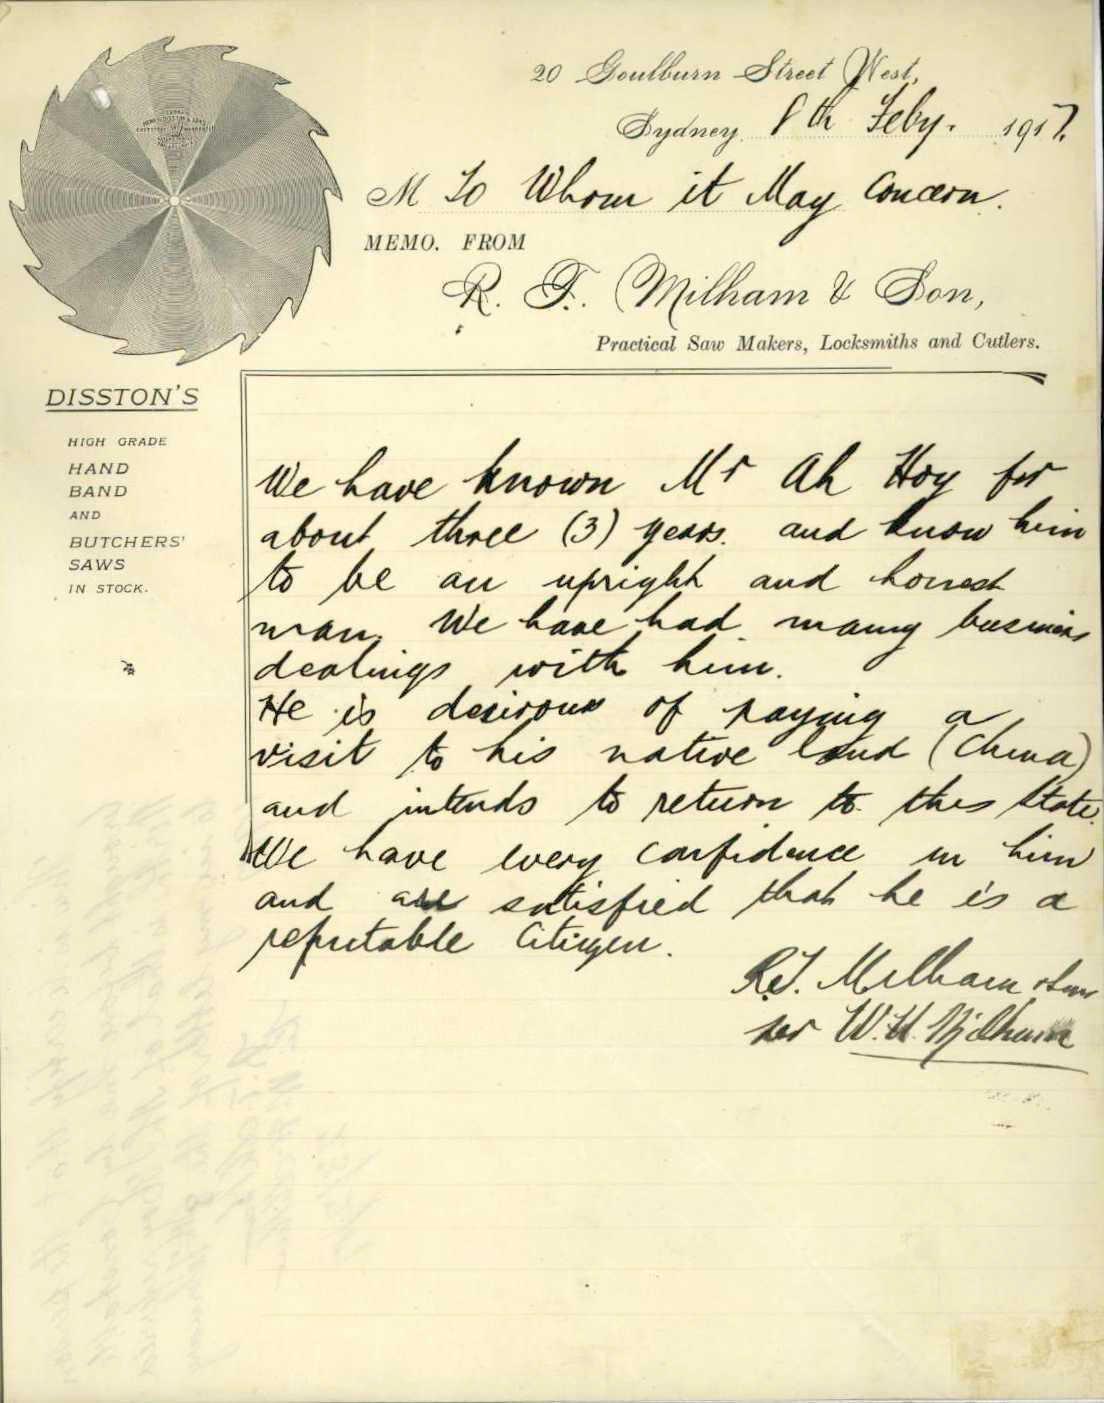 20 Goulburn Street West,
Sydney 8th Feby. 1917.
M To Whom it May Concern.
MEMO. FROM
R. F. Milham & Son,
Practical Saw Makers, Locksmiths and Cutlers.
DISSTON'S
HIGH GRADE
HAND
BAND
AND
BUTCHERS'
SAWS
IN STOCK.
We have known Mr Ah Hoy for
about three (3) years. and know him
to be an upright and honest
man. We have had many business
dealings with him.
He is desirous of paying a
visit to his native land (China)
and intends to return to this State.
We have every confidence in him
and are satisfied that he is a
reputable Citizen.
R.F. Milham & Son
per W. H. Milham